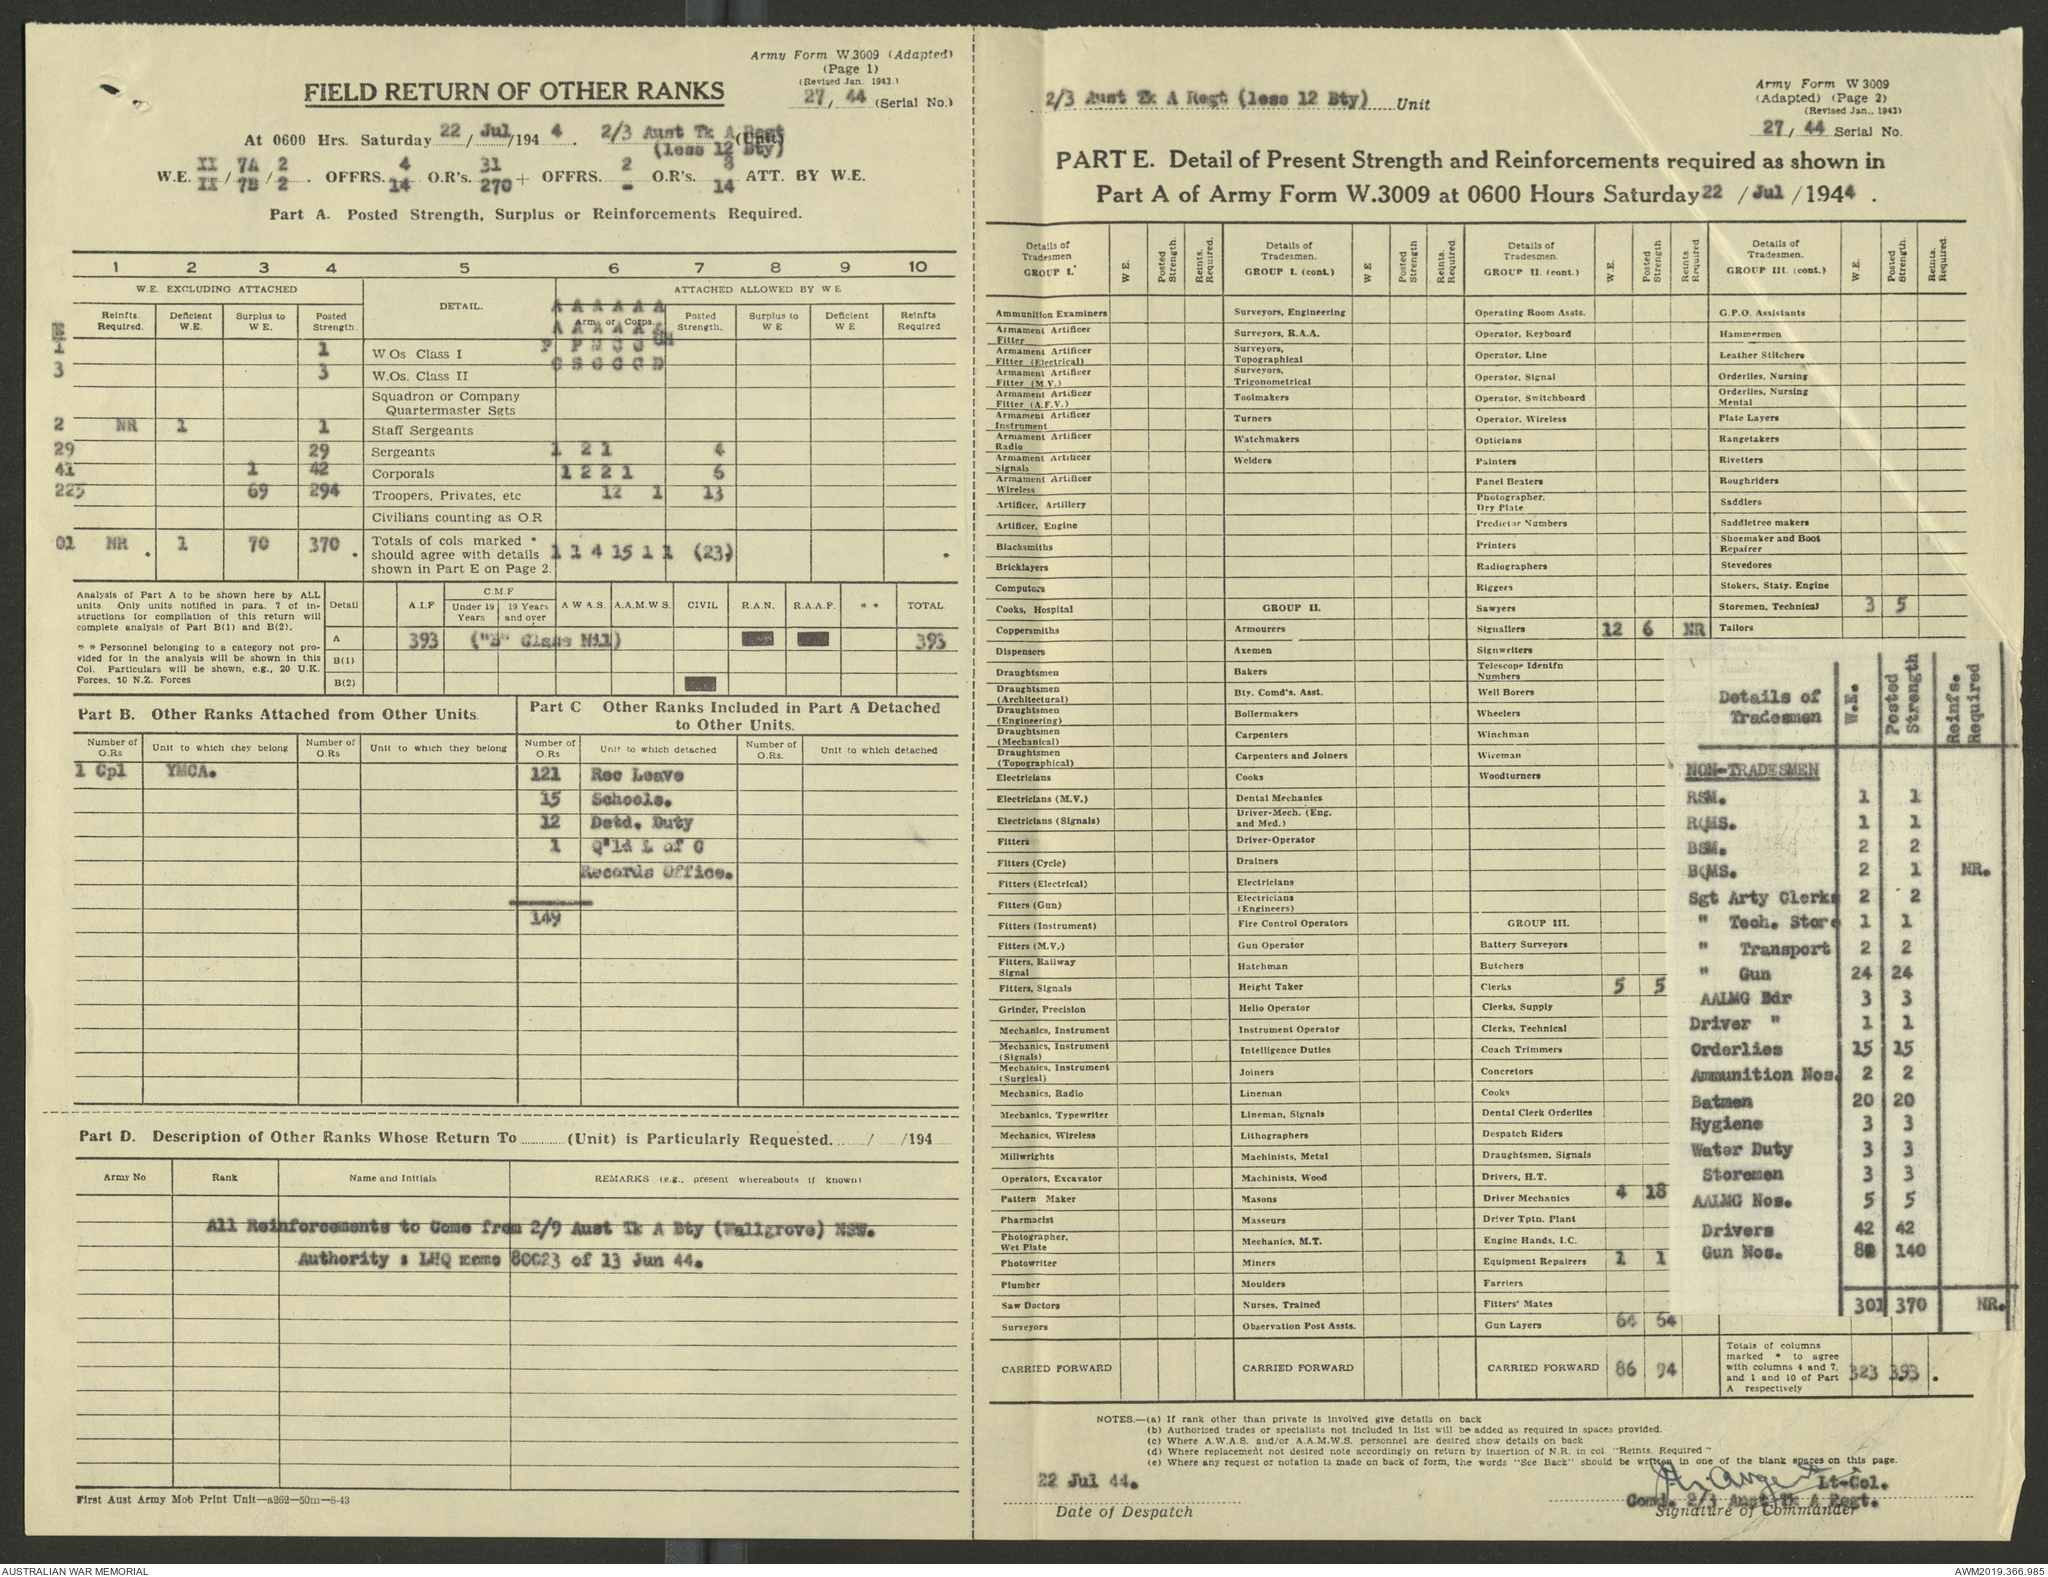 Army Form W.3009 (Adapted)
(Page 1)
(Revised Jan. 1943.)
27/ 44 (Serial No.)
FIELD RETURN OF OTHER RANKS
At 0600 Hrs. Saturday 22 / Jul /194 4 . 2/3 Aust Tk A Regt (Unit)
(less 12 Bty)
W.E. II / 7A / 2 . OFFRS. 4 O.R's. 31 + OFFRS. 2 O.R's. 8 ATT. BY W.E.
II 7B 2 14 270 - 14
Part A. Posted Strength, Surplus or Reinforcements Required.
1 2 3 4 5 6 7 8 9 10
W.E. EXCLUDING ATTACHED DETAIL. ATTACHED ALLOWED BY W E
Reinfts. Required. Deficient W.E. Surplus to W E. Posted Strength. Arm or Corps. Posted Strength. Surplus to W E Deficient W E Reinfts Required
A A A A A A
A A A A A
P P E C C CH
C S C C C D
1 1 W.Os Class I
3 3 W.Os. Class II
Squadron or Company
Quartermaster Sgts
2 NR 1 1 Staff Sergeants
29 29 Sergeants 1 2 1 4
41 1 42 Corporals 1 2 2 1 6
225 69 294 Troopers, Privates, etc 12 1 13
Civilians counting as O.R
01 NR . 1 70 370 . Totals of cols marked * should agree with details shown in Part E on Page 2. 1 1 4 15 1 1 (23) .
Analysis of Part A to be shown here by ALL
units. Only units notified in para. 7 of in-
structions for compilation of this return will
complete analysis of Part B(1) and B(2).
* * Personnel belonging to a category not pro-
vided for in the analysis will be shown in this
Col. Particulars will be shown, e.g., 20 U.K.
Forces, 10 N.Z. Forces
Detail A.I.F C.M.F Under 19 Years 19 Years and over A W A S. A.A.M.W S. CIVIL R.A.N. R.A.A.F. * * TOTAL
A 393 ("B" Class Nil) 393
B(1)
B(2)
Part B. Other Ranks Attached from Other Units.
Number of O.Rs Unit to which they belong Number of O.Rs Unit to which they belong
1 Cpl YMCA.
Part C Other Ranks Included in Part A Detached
to Other Units.
Number of O.Rs Unit to which detached Number of O.Rs. Unit to which detached
121 Rec Leave
15 Schools.
12 Detd. Duty
1 Q'ld L of C
Records Office.
149
Part D. Description of Other Ranks Whose Return To (Unit) is Particularly Requested. / /194
Army No Rank Name and Initials REMARKS (e.g., present whereabouts if known)
All Reinforcements to Come from 2/9 Aust Tk A Bty (Wallgrove) NSW.
Authority : LHQ memo 80023 of 13 Jun 44.
First Aust Army Mob Print Unit—a262—50m—8-43
2/3 Aust Tk A Regt (less 12 Bty) Unit
Army Form W 3009
(Adapted) (Page 2)
(Revised Jan., 1943)
27/ 44 Serial No.
PART E. Detail of Present Strength and Reinforcements required as shown in
Part A of Army Form W.3009 at 0600 Hours Saturday 22 / Jul / 1944 .
Details of Tradesmen GROUP I. W E. Posted Strength. Reints. Required.
Ammunition Examiners
Armament Artificer Fitter
Armament Artificer Fitter (Electrical)
Armament Artificer Fitter (M.V.)
Armament Artificer Fitter (A.F.V.)
Armament Artificer Instrument
Armament Artificer Radio
Armament Artificer Signals
Armament Artificer Wireless
Artificer, Artillery
Artificer, Engine
Blacksmiths
Bricklayers
Computors
Cooks, Hospital
Coppersmiths
Dispensers
Draughtsmen
Draughtsmen (Architectural)
Draughtsmen (Engineering)
Draughtsmen (Mechanical)
Draughtsmen (Topographical)
Electricians
Electricians (M.V.)
Electricians (Signals)
Fitters
Fitters (Cycle)
Fitters (Electrical)
Fitters (Gun)
Fitters (Instrument)
Fitters (M.V.)
Fitters, Railway Signal
Fitters, Signals
Grinder, Precision
Mechanics, Instrument
Mechanics, Instrument (Signals)
Mechanics, Instrument (Surgical)
Mechanics, Radio
Mechanics, Typewriter
Mechanics, Wireless
Millwrights
Operators, Excavator
Pattern Maker
Pharmacist
Photographer, Wet Plate
Photowriter
Plumber
Saw Doctors
Surveyors
CARRIED FORWARD
Details of Tradesmen. GROUP I. (cont.) W E Posted Strength Reints. Required.
Surveyors, Engineering
Surveyors, R.A.A.
Surveyors, Topographical
Surveyors, Trigonometrical
Toolmakers
Turners
Watchmakers
Welders
GROUP II.
Armourers
Axemen
Bakers
Bty. Comd's. Asst.
Boilermakers
Carpenters
Carpenters and Joiners
Cooks
Dental Mechanics
Driver-Mech. (Eng. and Med.)
Driver-Operator
Drainers
Electricians
Electricians (Engineers)
Fire Control Operators
Gun Operator
Hatchman
Height Taker
Helio Operator
Instrument Operator
Intelligence Duties
Joiners
Lineman
Lineman, Signals
Lithographers
Machinists, Metal
Machinists, Wood
Masons
Masseurs
Mechanics, M.T.
Miners
Moulders
Nurses, Trained
Observation Post Assts.
CARRIED FORWARD
Details of Tradesmen. GROUP II. (cont.) W.E. Posted Strength Reints Required
Operating Room Assts.
Operator, Keyboard
Operator, Line
Operator, Signal
Operator, Switchboard
Operator, Wireless
Opticians
Painters
Panel Beaters
Photographer, Dry Plate
Predictor Numbers
Printers
Radiographers
Riggers
Sawyers
Signallers 12 6 NR
Signwriters
Telescope Identfn Numbers
Well Borers
Wheelers
Winchman
Wireman
Woodturners
GROUP III.
Battery Surveyors
Butchers
Clerks 5 5
Clerks, Supply
Clerks, Technical
Coach Trimmers
Concretors
Cooks
Dental Clerk Orderlies
Despatch Riders
Draughtsmen, Signals
Drivers, H.T.
Driver Mechanics 4 18
Driver Tptn. Plant
Engine Hands, I.C.
Equipment Repairers 1 1
Farriers
Fitters' Mates
Gun Layers 64 64
CARRIED FORWARD 86 94
Details of Tradesmen. GROUP III. (cont.) W.E. Posted Strength. Reints. Required.
G.P.O. Assistants
Hammermen
Leather Stitchers
Orderlies, Nursing
Orderlies, Nursing Mental
Plate Layers
Rangetakers
Rivetters
Roughriders
Saddlers
Saddletree makers
Shoemaker and Boot Repairer
Stevedores
Stokers, Staty. Engine
Storemen, Technical 3 5
Tailors
Details of Tradesmen W.E. Posted Strength Reinfs. Required
NON-TRADESMEN
RSM. 1 1
RQMS. 1 1
BSM. 2 2
BQMS. 2 1 NR.
Sgt Arty Clerks 2 2
" Tech. Store 1 1
" Transport 2 2
" Gun 24 24
AALMG Bdr 3 3
Driver " 1 1
Orderlies 15 15
Ammunition Nos. 2 2
Batmen 20 20
Hygiene 3 3
Water Duty 3 3
Storemen 3 3
AALMG Nos. 5 5
Drivers 42 42
Gun Nos. 140
301 370 NR.
Totals of columns marked * to agree with columns 4 and 7, and 1 and 10 of Part A respectively 323 393 .
NOTES.—(a) If rank other than private is involved give details on back
(b) Authorised trades or specialists not included in list will be added as required in spaces provided.
(c) Where A.W.A.S. and/or A.A.M.W.S. personnel are desired show details on back
(d) Where replacement not desired note accordingly on return by insertion of N.R. in col. "Reints. Required"
(e) Where any request or notation is made on back of form, the words "See Back" should be written in one of the blank spaces on this page.
22 Jul 44.
Date of Despatch
Lt-Col.
Comd. 2/3 Aust Tk A Regt.
Signature of Commander
AUSTRALIAN WAR MEMORIAL
AWM2019.366.985